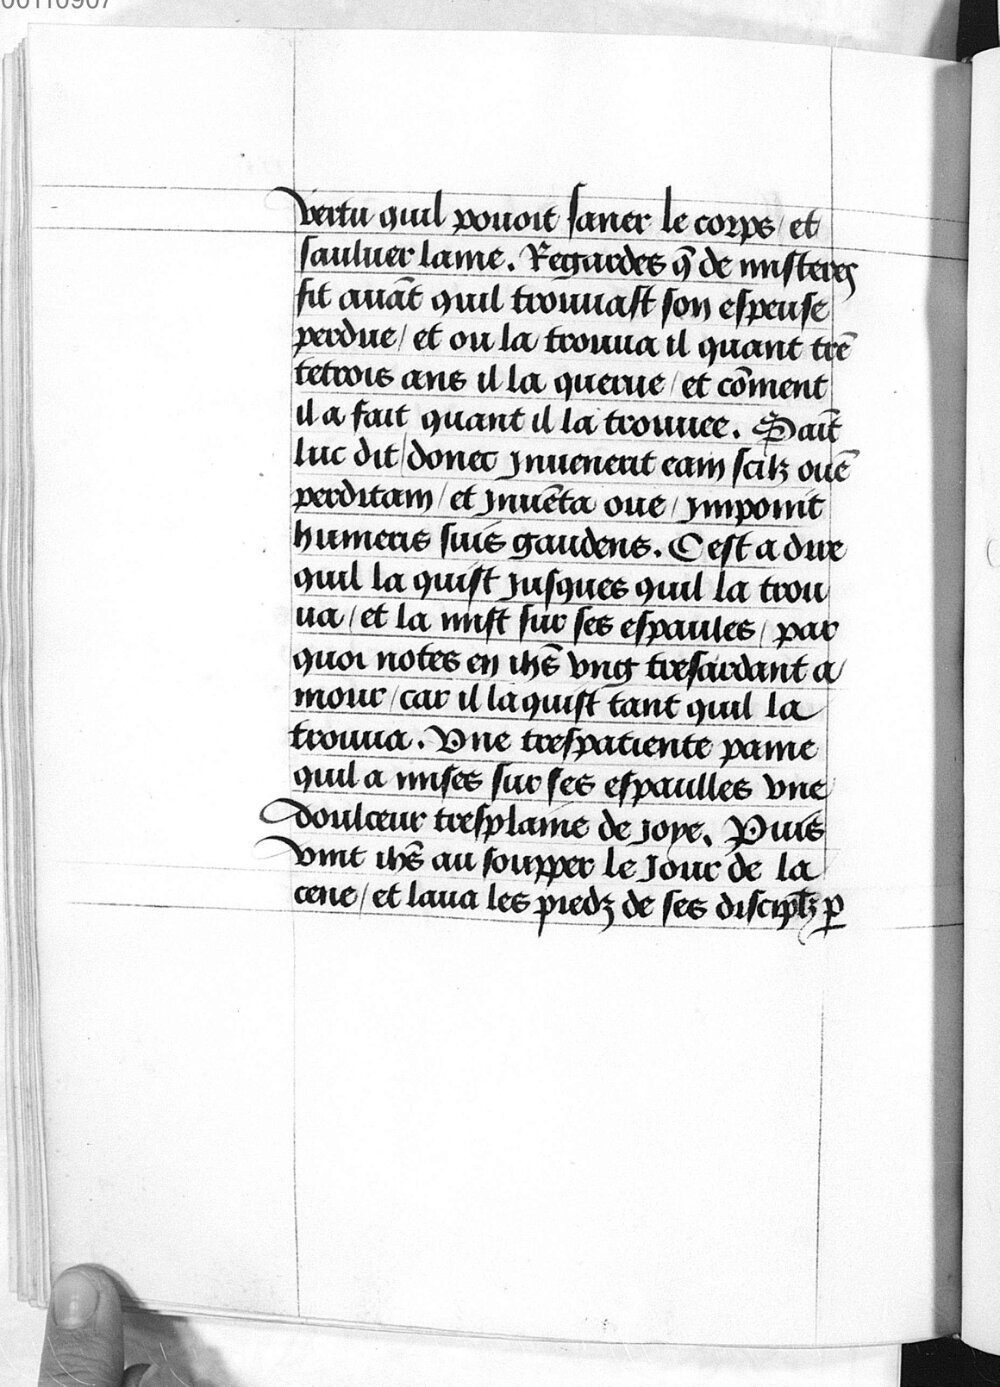 00110907
vertu quil pouoit saner le corps / et
sauluer lame. Regardes q̄ de misteres
fit auāt quil trouuast son espeuse
perdue / et ou la trouua il quant trē
tetrois ans il la querue / et cōment
il a fait quant il la trouuee. Sait̄
luc dit / donec jnuenerit eam scilz ouē
perditam / et jnuēta oue / jmponit
humeris suis gaudens. Cest a dire
quil la quist jusques quil la trou
ua / et la mist sur ses espaules / par
quoi notes en ihēs vng tresardant a
mour / car il la quist tant quil la
trouua. Vne trespatiente pame
quil a mises sur ses espaulles vne
doulceur tresplaine de joye. Puis
vint ihēs au soupper le jour de la
cene / et laua les piedz de ses discipl̄z p̱